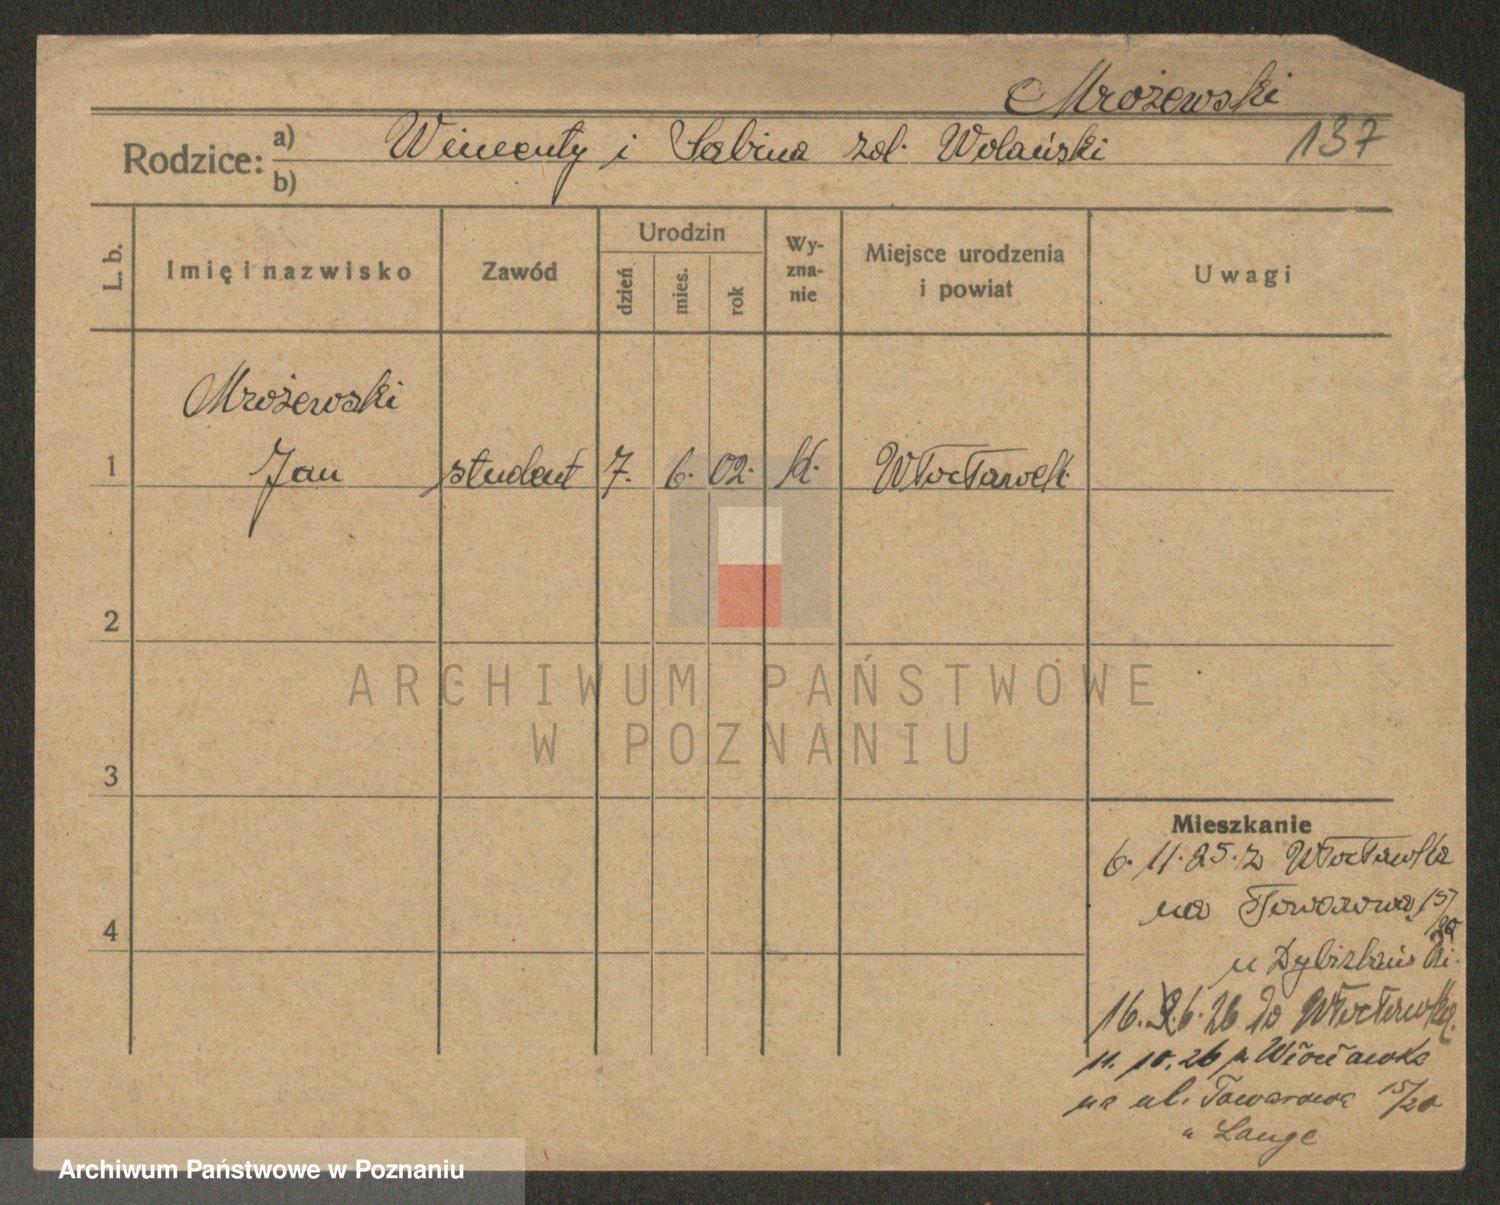 Mrożewski
Rodzice: a) Wincenty i Sabina zd. Wolański 137
b)
L. b. Imię i nazwisko Zawód Urodzin dzień mies. rok Wy-zna-nie Miejsce urodzenia i powiat Uwagi
Mrożewski
1 Jan student 7. 6. 02. k. Włocławek
2
ARCHIWUM PAŃSTWOWE
W POZNANIU
3
Mieszkanie
6. 11. 25. z Włocławka
na Towarowa 15/20
4
u
16. 6. 26 do Włocławka.
11. 10. 26 z Włocławka
na ul. Towarową 15/20
u Lange
Archiwum Państwowe w Poznaniu